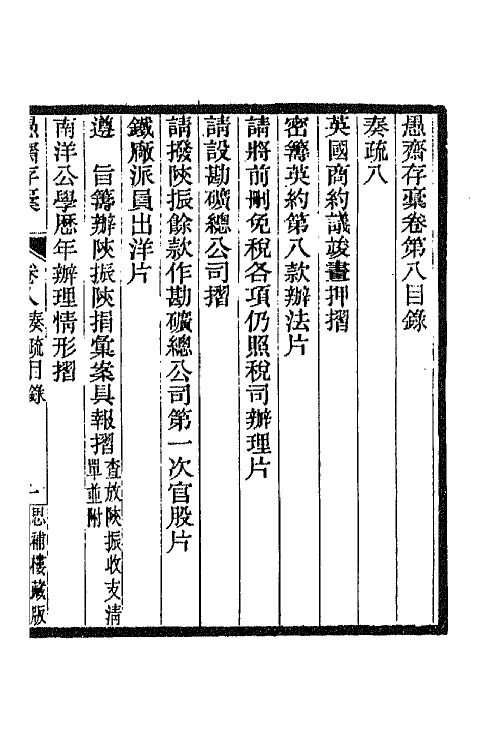 愚齋存稾卷第八目錄
奏疏八
英國商約議竣畫押摺
密籌英約第八款辦法片
請將前刪免稅各項仍照稅司辦理片
請設勘礦總公司摺
請撥陝振餘款作勘礦總公司第一次官股片
鐵廠派員出洋片
遵　旨籌辦陝振陝捐彙案具報摺 查放陝振收支清單並附
南洋公學歷年辦理情形摺
愚齋存稾　卷八奏疏目錄　一　思補樓藏版